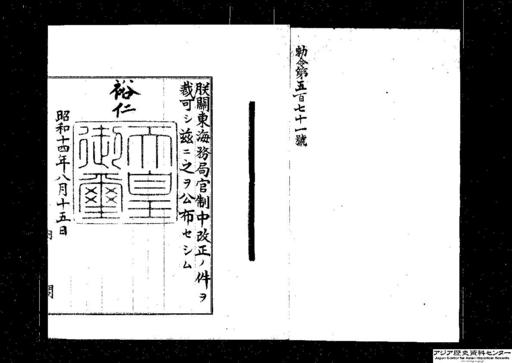 勅令第五百七十一號
朕關東海務局官制中改正ノ件ヲ
裁可シ茲ニ之ヲ公布セシム
裕仁
天皇
御璽
昭和十四年八月十五日
内閣
アジア歴史資料センター
Japan Center for Asian Historical Records